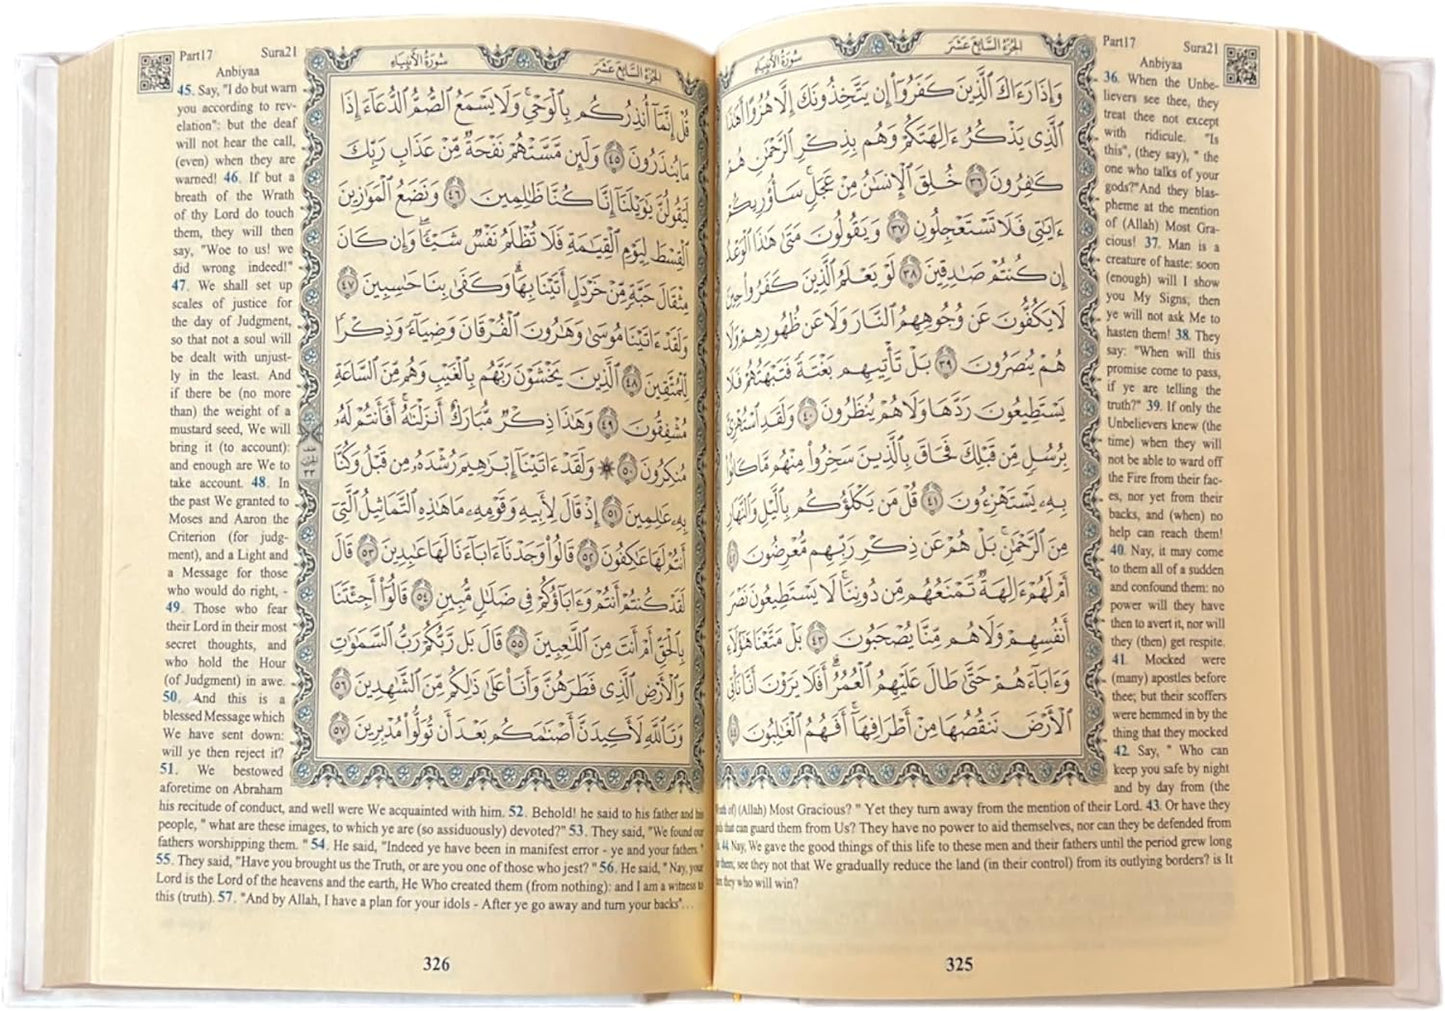 Part17
Sura21
Anbiyaa
سُورَةُ الأَنبِيَاءِ
الجُزْءُ السَّابِعَ عَشَرَ
وَإِذَا رَءَاكَ ٱلَّذِينَ كَفَرُوٓا۟ إِن يَتَّخِذُونَكَ إِلَّا هُزُوًا أَهَٰذَا
ٱلَّذِى يَذْكُرُ ءَالِهَتَكُمْ وَهُم بِذِكْرِ ٱلرَّحْمَٰنِ هُمْ
كَٰفِرُونَ ٣٦ خُلِقَ ٱلْإِنسَٰنُ مِنْ عَجَلٍ سَأُو۟رِيكُمْ
ءَايَٰتِى فَلَا تَسْتَعْجِلُونِ ٣٧ وَيَقُولُونَ مَتَىٰ هَٰذَا ٱلْوَعْدُ
إِن كُنتُمْ صَٰدِقِينَ ٣٨ لَوْ يَعْلَمُ ٱلَّذِينَ كَفَرُوا۟ حِينَ
لَا يَكُفُّونَ عَن وُجُوهِهِمُ ٱلنَّارَ وَلَا عَن ظُهُورِهِمْ وَلَا
هُمْ يُنصَرُونَ ٣٩ بَلْ تَأْتِيهِم بَغْتَةً فَتَبْهَتُهُمْ فَلَا
يَسْتَطِيعُونَ رَدَّهَا وَلَا هُمْ يُنظَرُونَ ٤٠ وَلَقَدِ ٱسْتُهْزِئَ
بِرُسُلٍ مِّن قَبْلِكَ فَحَاقَ بِٱلَّذِينَ سَخِرُوا۟ مِنْهُم مَّا كَانُوا۟
بِهِۦ يَسْتَهْزِءُونَ ٤١ قُلْ مَن يَكْلَؤُكُم بِٱلَّيْلِ وَٱلنَّهَارِ
مِنَ ٱلرَّحْمَٰنِ بَلْ هُمْ عَن ذِكْرِ رَبِّهِم مُّعْرِضُونَ ٤٢
أَمْ لَهُمْ ءَالِهَةٌ تَمْنَعُهُم مِّن دُونِنَا لَا يَسْتَطِيعُونَ نَصْرَ
أَنفُسِهِمْ وَلَا هُم مِّنَّا يُصْحَبُونَ ٤٣ بَلْ مَتَّعْنَا هَٰٓؤُلَآءِ
وَءَابَآءَهُمْ حَتَّىٰ طَالَ عَلَيْهِمُ ٱلْعُمُرُ أَفَلَا يَرَوْنَ أَنَّا نَأْتِى
ٱلْأَرْضَ نَنقُصُهَا مِنْ أَطْرَافِهَآ أَفَهُمُ ٱلْغَٰلِبُونَ ٤٤
36. When the Unbe-
lievers see thee, they
treat thee not except
with ridicule. "Is
this", (they say), " the
one who talks of your
gods?"And they blas-
pheme at the mention
of (Allah) Most Gra-
cious! 37. Man is a
creature of haste: soon
(enough) will I show
you My Signs; then
ye will not ask Me to
hasten them! 38. They
say: "When will this
promise come to pass,
if ye are telling the
truth?" 39. If only the
Unbelievers knew (the
time) when they will
not be able to ward off
the Fire from their fac-
es, nor yet from their
backs, and (when) no
help can reach them!
40. Nay, it may come
to them all of a sudden
and confound them: no
power will they have
then to avert it, nor will
they (then) get respite.
41. Mocked were
(many) apostles before
thee; but their scoffers
were hemmed in by the
thing that they mocked
42. Say, " Who can
keep you safe by night
and by day from (the
of) (Allah) Most Gracious? " Yet they turn away from the mention of their Lord. 43. Or have they
that can guard them from Us? They have no power to aid themselves, nor can they be defended from
44 Nay, We gave the good things of this life to these men and their fathers until the period grew long
them; see they not that We gradually reduce the land (in their control) from its outlying borders? is It
they who will win?
325
Part17
Sura21
Anbiyaa
سُورَةُ الأَنبِيَاءِ
الجُزْءُ السَّابِعَ عَشَرَ
قُلْ إِنَّمَآ أُنذِرُكُم بِٱلْوَحْىِ وَلَا يَسْمَعُ ٱلصُّمُّ ٱلدُّعَآءَ إِذَا
مَا يُنذَرُونَ ٤٥ وَلَئِن مَّسَّتْهُمْ نَفْحَةٌ مِّنْ عَذَابِ رَبِّكَ
لَيَقُولُنَّ يَٰوَيْلَنَآ إِنَّا كُنَّا ظَٰلِمِينَ ٤٦ وَنَضَعُ ٱلْمَوَٰزِينَ
ٱلْقِسْطَ لِيَوْمِ ٱلْقِيَٰمَةِ فَلَا تُظْلَمُ نَفْسٌ شَيْـًٔا وَإِن كَانَ
مِثْقَالَ حَبَّةٍ مِّنْ خَرْدَلٍ أَتَيْنَا بِهَا وَكَفَىٰ بِنَا حَٰسِبِينَ ٤٧
وَلَقَدْ ءَاتَيْنَا مُوسَىٰ وَهَٰرُونَ ٱلْفُرْقَانَ وَضِيَآءً وَذِكْرًا
لِّلْمُتَّقِينَ ٤٨ ٱلَّذِينَ يَخْشَوْنَ رَبَّهُم بِٱلْغَيْبِ وَهُم مِّنَ ٱلسَّاعَةِ
مُشْفِقُونَ ٤٩ وَهَٰذَا ذِكْرٌ مُّبَارَكٌ أَنزَلْنَٰهُ أَفَأَنتُمْ لَهُۥ
مُنكِرُونَ ٥٠ ۞ وَلَقَدْ ءَاتَيْنَآ إِبْرَٰهِيمَ رُشْدَهُۥ مِن قَبْلُ وَكُنَّا
بِهِۦ عَٰلِمِينَ ٥١ إِذْ قَالَ لِأَبِيهِ وَقَوْمِهِۦ مَا هَٰذِهِ ٱلتَّمَاثِيلُ ٱلَّتِىٓ
أَنتُمْ لَهَا عَٰكِفُونَ ٥٢ قَالُوا۟ وَجَدْنَآ ءَابَآءَنَا لَهَا عَٰبِدِينَ ٥٣ قَالَ
لَقَدْ كُنتُمْ أَنتُمْ وَءَابَآؤُكُمْ فِى ضَلَٰلٍ مُّبِينٍ ٥٤ قَالُوٓا۟ أَجِئْتَنَا
بِٱلْحَقِّ أَمْ أَنتَ مِنَ ٱللَّٰعِبِينَ ٥٥ قَالَ بَل رَّبُّكُمْ رَبُّ ٱلسَّمَٰوَٰتِ
وَٱلْأَرْضِ ٱلَّذِى فَطَرَهُنَّ وَأَنَا۠ عَلَىٰ ذَٰلِكُم مِّنَ ٱلشَّٰهِدِينَ ٥٦
وَتَٱللَّهِ لَأَكِيدَنَّ أَصْنَٰمَكُم بَعْدَ أَن تُوَلُّوا۟ مُدْبِرِينَ ٥٧
45. Say, "I do but warn
you according to rev-
elation": but the deaf
will not hear the call,
(even) when they are
warned! 46. If but a
breath of the Wrath
of thy Lord do touch
them, they will then
say, "Woe to us! we
did wrong indeed!"
47. We shall set up
scales of justice for
the day of Judgment,
so that not a soul will
be dealt with unjust-
ly in the least. And
if there be (no more
than) the weight of a
mustard seed, We will
bring it (to account):
and enough are We to
take account. 48. In
the past We granted to
Moses and Aaron the
Criterion (for judg-
ment), and a Light and
a Message for those
who would do right, -
49. Those who fear
their Lord in their most
secret thoughts, and
who hold the Hour
(of Judgment) in awe.
50. And this is a
blessed Message which
We have sent down:
will ye then reject it?
51. We bestowed
aforetime on Abraham
his recitude of conduct, and well were We acquainted with him. 52. Behold! he said to his father and his
people, " what are these images, to which ye are (so assiduously) devoted?" 53. They said, "We found our
fathers worshipping them. " 54. He said, "Indeed ye have been in manifest error - ye and your fathers. "
55. They said, "Have you brought us the Truth, or are you one of those who jest? " 56. He said, " Nay, your
Lord is the Lord of the heavens and the earth, He Who created them (from nothing): and I am a witness to
this (truth). 57. "And by Allah, I have a plan for your idols - After ye go away and turn your backs"...
326